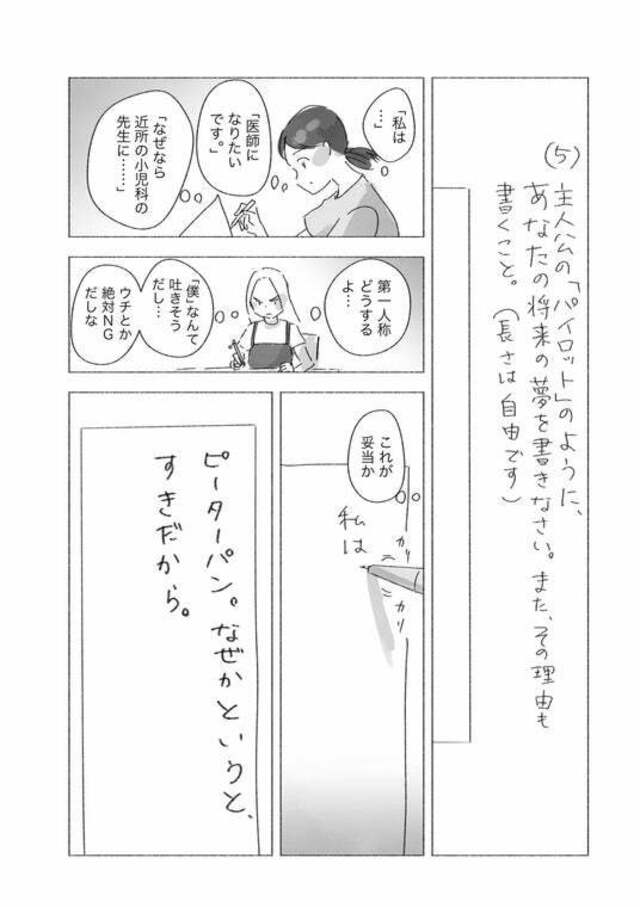 (5) 主人公の「パイロット」のように、
あなたの将来の夢を書きなさい。また、その理由も
書くこと。(長さは自由です)
「私は
…」
「医師に
なりたい
です。」
「なぜなら
近所の小児科の
先生に……」
第一人称
どうする
よ…
「僕」なんて
吐きそう
だし…
ウチとか
絶対NG
だしな
これが
妥当か
私は
カリ
カリ
ピーターパン。なぜかというと、
すきだから。